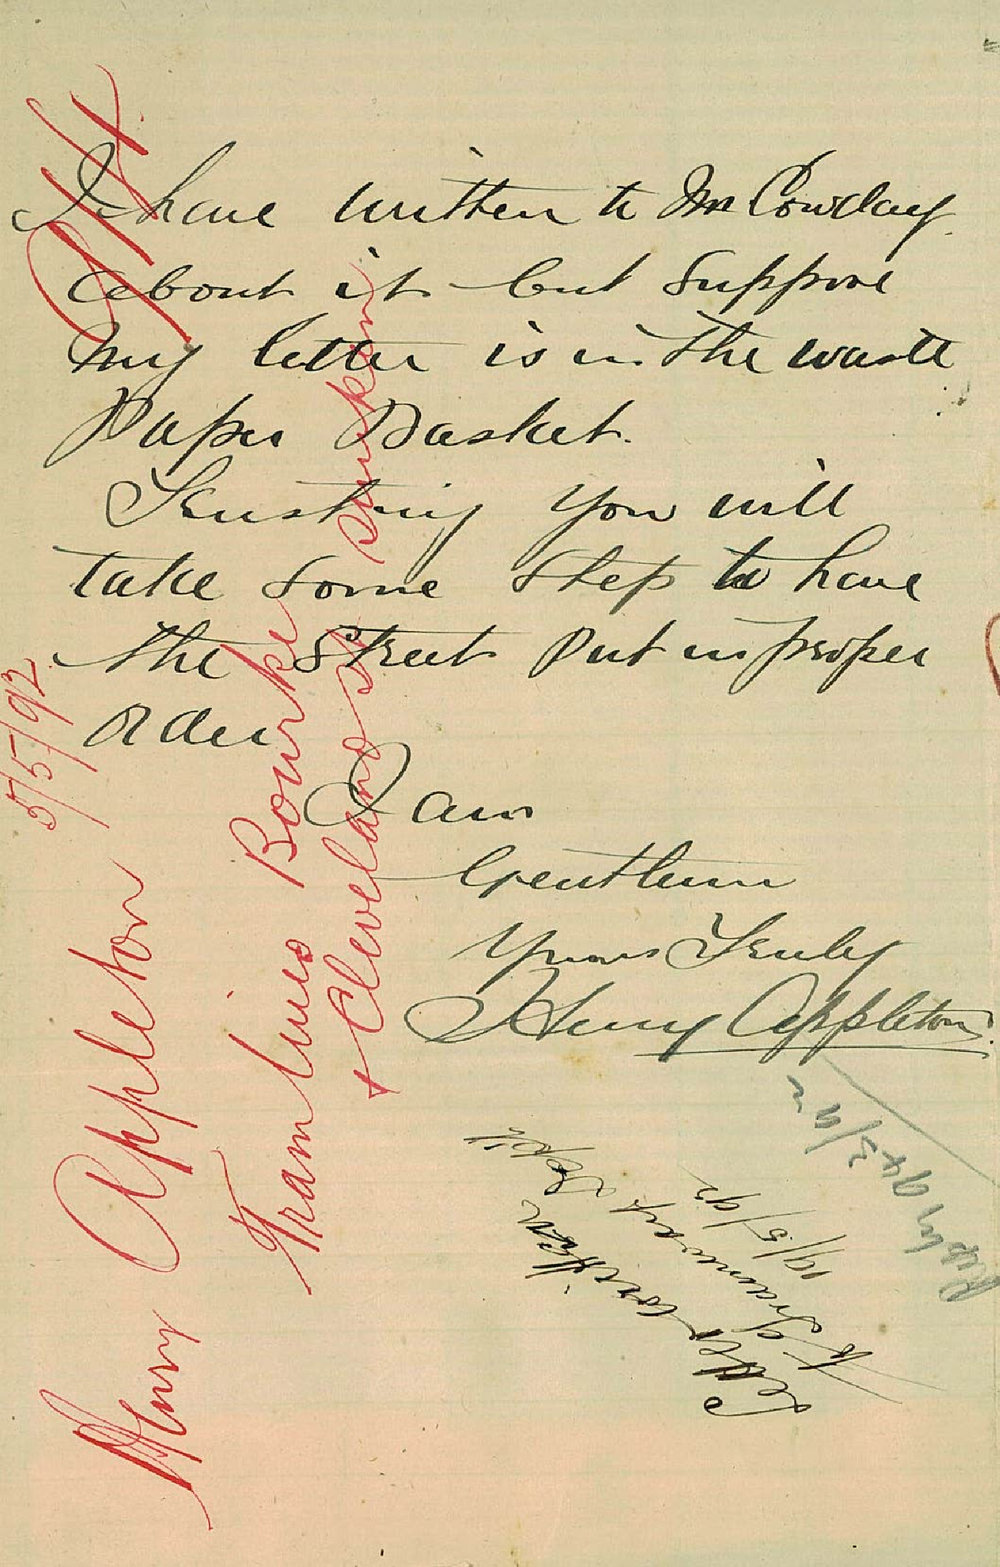 I have written to Mr Cowdery
about it but suppose
my letter is in the waste
Paper Basket.
Trusting you will
take some step to have
the Street Put in proper
order
I am
Gentlemen
Yours Truly
Henry Appleton
944
Henry Appleton 5/5/92
Tram lines Bourke
& Cleveland St sunken
Letter written
to Tramway Dept
19/5/92
Reply